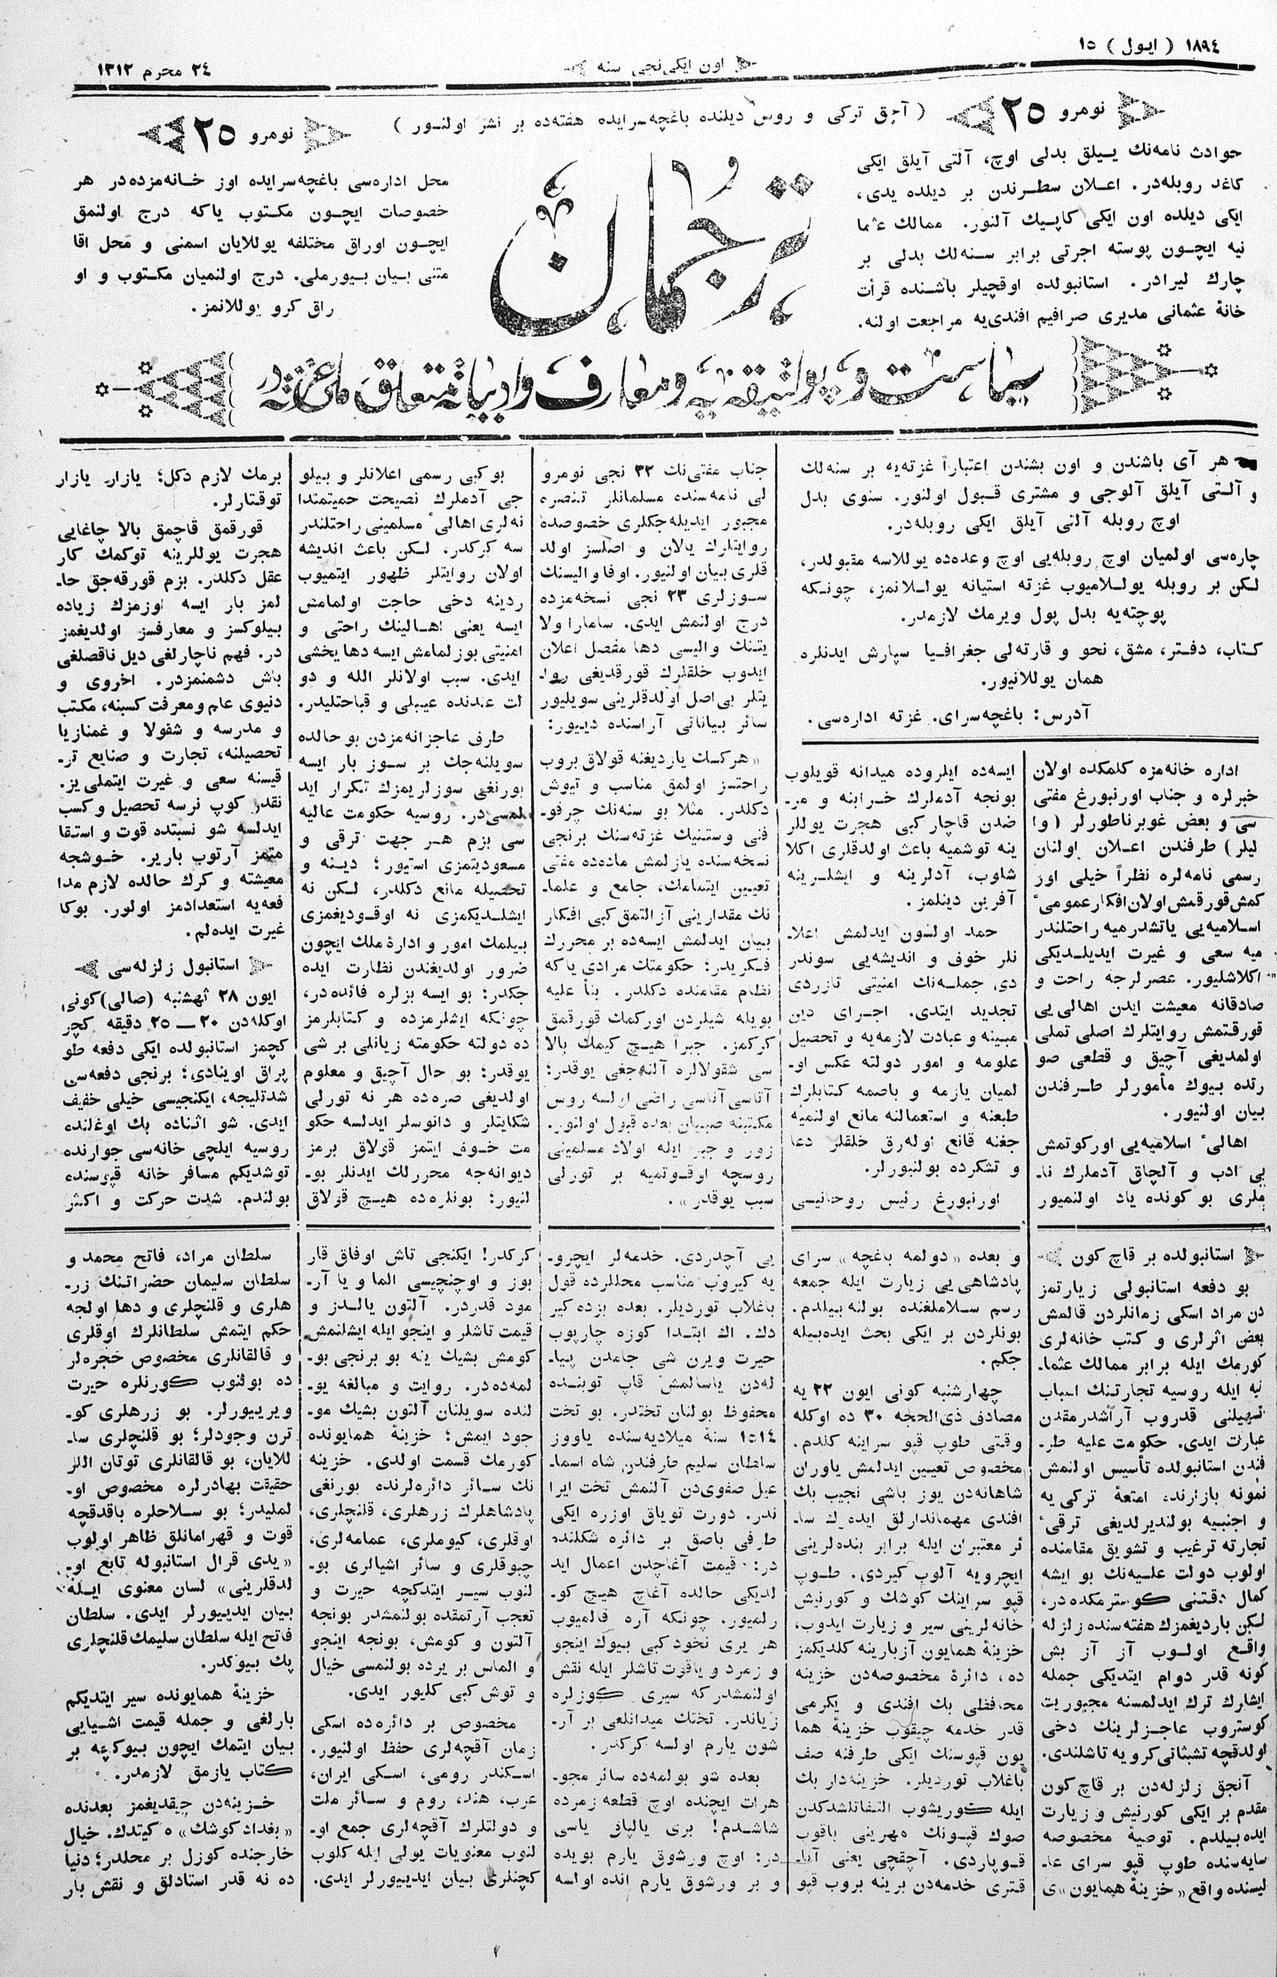 ١٨٩٤ ( ایول ) ١٥
اون ایكی نجی سنه
٢٤ محرم ١٣١٢
نومرو ٢٥
( آچق تركی و روس دیلنده باغچه سرایده هفته ده بر نشر اولنور )
نومرو ٢٥
حوادث نامه نك ییلق بدلی اوچ، آلتی آیلق ایكی
كاغد روبله در. اعلان سطرندن بر دیلده یدی،
ایكی دیلده اون ایكی كاپیك آلنور. ممالك عثما
نیه ایچون پوسته اجرتی برابر سنه لك بدلی بر
چارك لیرادر. استانبولده اوقچیلر باشنده قرأت
خانهٔ عثمانی مدیری صرافیم افندی یه مراجعت اولنه.
ترجمان
محل اداره سی باغچه سرایده اوز خانه مزده در هر
خصوصات ایچون مكتوب یاكه درج اولنمق
ایچون اوراق مختلفه یوللایان اسمنی و محل اقا
متنی بیان بیورملی. درج اولنمیان مكتوب و او
راق كرو یوللانمز.
سیاست و پولتیقه یه و معارف و ادبیاته متعلق ملی غزته در
هر آی باشندن و اون بشندن اعتباراً غزته یه بر سنه لك
و آلتی آیلق آلوجی و مشتری قبول اولنور. سنوی بدل
اوچ روبله آلتی آیلق ایكی روبله در.
چاره سی اولمیان اوچ روبله یی اوچ وعده ده یوللاسه مقبولدر،
لكن بر روبله یوللامیوب غزته استیانه یوللانمز، چونكه
پوچته یه بدل پول ویرمك لازمدر.
كتاب، دفتر، مشق، نحو و قارته لی جغرافیا سپارش ایدنلره
همان یوللانیور.
آدرس: باغچه سرای. غزته اداره سی.
اداره خانه مزه كلمكده اولان
خبرلره و جناب اورنبورغ مفتی
سی و بعض غوبرناطورلر (وا
لیلر) طرفندن اعلان اولنان
رسمی نامه لره نظراً خیلی اور
كمش قورقمش اولان افكار عمومیٔ
اسلامیه یی یاتشدرمیه راحتلندر
میه سعی و غیرت ایدیلدیكی
اكلاشلیور. عصرلرجه راحت و
صادقانه معیشت ایدن اهالی یی
قورقتمش روایتلرك اصلی تملی
اولمدیغی آچیق و قطعی صو
رتده بیوك مأمورلر طرفندن
بیان اولنیور.
اهالیٔ اسلامیه یی اوركوتمش
بی ادب و آلچاق آدملرك نا
ملری بو كونده یاد اولنمیور
ایسه ده ایلروده میدانه قویلوب
بونجه آدملرك خرابنه و مر
ضدن قاچار كبی هجرت یوللر
ینه توشمیه باعث اولدقلری اكلا
شلوب، آدلرینه و ایشلرینه
آفرین دینلمز.
حمد اولسون ایدلمش اعلا
نلر خوف و اندیشه یی سوندر
دی جمله نك امنیتی تازردی
تجدید ایتدی. اجرای دین
مبینه و عبادت لازمه یه و تحصیل
علومه و امور دولته عكس او
لمیان یازمه و باصمه كتابلرك
طبعنه و استعمالنه مانع اولنمیه
جغنه قانع اوله رق خلقلر دعا
و تشكرده بولنیورلر.
اورنبورغ رئیس روحانیسی
جناب مفتی نك ٣٢ نجی نومرو
لی نامه سنده مسلمانلر تنصره
مجبور ایدیله جكلری خصوصده
روایتلرك یالان و اصلسز اولد
قلری بیان اولنیور. اوفا والیسنك
سوزلری ٢٣ نجی نسخه مزده
درج اولنمش ایدی. سامارا ولا
یتنك والیسی دها مفصل اعلان
ایدوب خلقلرك قورقدیغی روا
یتلر بی اصل اولدقلرینی سویلیور
سائر بیاناتی آراسنده دییور:
«هركسك یاردیغنه قولاق بروب
راحتسز اولمق مناسب و تیوش
دكلدر. مثلا بو سنه نك چرقو
فنی وستنیك غزته سنك برنجی
نسخه سنده یازلمش ماده ده مفتی
تعیین ایتمامك، جامع و علما
نك مقدارینی آزالتمق كبی افكار
بیان ایدلمش ایسه ده بر محررك
فكریدر: حكومتك مرادی یاكه
نظام مقامنده دكلدر. بنأ علیه
بویله شیلردن اوركمك قورقمق
كركمز. جبراً هیچ كیمك بالا
سی شقولالره آلنه جغی یوقدر:
آتاسی آناسی راضی اولسه روس
مكتبنه صبیان بعده قبول اولنور.
زور و جبر ایله اولاد مسلمینی
روسچه اوقوتمیه بر تورلی
سبب یوقدر».
بوكبی رسمی اعلانلر و بیلو
جی آدملرك نصیحت حمیتمندا
نه لری اهالیٔ مسلمینی راحتلندر
سه كركدر، لكن باعث اندیشه
اولان روایتلر ظهور ایتمیوب
ردینه دخی حاجت اولمامش
ایسه یعنی اهالینك راحتی و
امنیتی بوزلمامش ایسه دها یخشی
ایدی. سبب اولانلر الله و دو
لت عندنده عیبلی و قباحتلیدر.
طرف عاجزانه مزدن بو حالده
سویلنه جك بر سوز بار ایسه
بورنغی سوزلریمزك تكرار اید
لمسی در. روسیه حكومت عالیه
سی بزم هر جهت ترقی و
مسعودیتمزی استیور؛ دینه و
تحصیله مانع دكلدر، لكن نه
ایشلدیكمزی نه اوقودیغمزی
بیلمك امور و ادارهٔ ملك ایچون
ضرور اولدیغندن نظارت ایده
جكدر: بو ایسه بزلره فائده در،
چونكه ایشلرمزده و كتابلرمز
ده دولته حكومته زیانلی بر شی
یوقدر: بو حال آچیق و معلوم
اولدیغی صره ده هر نه تورلی
شكایتلر و دانوسلر ایدلسه حكو
مت خوف ایتمز قولاق برمز
دیوانه جه محررلك ایدنلر بو
لنیور: بونلره ده هیچ قولاق
برمك لازم دكل؛ یازار یازار
توقتارلر.
قورقمق قاچمق بالا چاغایی
هجرت یوللرینه توكمك كار
عقل دكلدر. بزم قورقه جق حا
لمز بار ایسه اوزمزك زیاده
بیلوكسز و معارفسز اولدیغمز
در. فهم ناچارلغی دیل ناقصلغی
باش دشمنمزدر. اخروی و
دنیوی علم و معرفت كسبنه، مكتب
و مدرسه و شقولا و غمنازیا
تحصیلنه، تجارت و صنایع تر
قیسنه سعی و غیرت ایتملی یز.
نقدر كوپ نرسه تحصیل و كسب
ایدلسه شو نسبتده قوت و استقا
متمز آرتوب باریر. خوشجه
معیشته و كرك حالده لازم مدا
فعه یه استعدادمز اولور. بوكا
غیرت ایده لم.
استانبول زلزله سی
ایون ٢٨ ثهشنبه (صالی) كونی
اوكله دن ٢٠ — ٢٥ دقیقه كچر
كچمز استانبولده ایكی دفعه طو
پراق اوینادی؛ برنجی دفعه سی
شدتلیجه، ایكنجیسی خیلی خفیف
ایدی. شو اثناده بك اوغلنده
روسیه ایلچی خانه سی جوارنده
توشدیكم مسافر خانه قپوسنده
بولندم. شدت حركت و اكثر
استانبولده بر قاچ كون
بو دفعه استانبولی زیارتمز
دن مراد اسكی زمانلردن قالمش
بعض اثرلری و كتب خانه لری
كورمك ایله برابر ممالك عثما
نیه ایله روسیه تجارتنك اسباب
تسهیلنی قدروب آراشدرمقدن
عبارت ایدی. حكومت علیه طر
فندن استانبولده تأسیس اولنمش
نمونه بازارنده امتعهٔ تركی یه
و اجنبیه بولندیرلدیغی ترقیٔ
تجارته ترغیب و تشویق مقامنده
اولوب دولت علیه نك بو ایشه
كمال دقتنی كوسترمكده در،
لكن باردیغمزك هفته سنده زلزله
واقع اولوب آز آز بش
كونه قدر دوام ایتدیكی جمله
ایشلرك ترك ایدلمسنه مجبوریت
كوستروب عاجزلرینك دخی
اولدقچه تشبثاتی كرویه تاشلندی.
آنجق زلزله دن بر قاچ كون
مقدم بر ایكی كورنیش و زیارت
ایده بیلدم. توصیهٔ مخصوصه
سایه سنده طوپ قپو سرای عا
لیسنده واقع «خزینهٔ همایون» ی
و بعده «دولمه باغچه» سرای
پادشاهی یی زیارت ایله جمعه
رسم سلاملغنده بولنه بیلدم.
بونلردن بر ایكی بحث ایده بیله
جكم.
چهارشنبه كونی ایون ٢٢ یه
مصادف ذی الحجه ٣٠ ده اوكله
وقتی طوپ قپو سراینه كلدم.
مخصوص تعیین ایدلمش یاوران
شاهانه دن یوز باشی نجیب بك
افندی مهماندارلق ایده رك سا
ئر معتبران ایله برابر بنده لرینی
ایچرویه آلوب كیردی. طوپ
قپو سراینك كوشك و كورنیش
خانه لرینی سیر و زیارت ایدوب،
خزینهٔ همایون آزبارینه كلدیكمز
ده، دائرهٔ مخصوصه دن خزینه
محافظی بك افندی و یكرمی
قدر خدمه چیقوب خزینهٔ هما
یون قپوسنك ایكی طرفنه صف
باغلاب توردیلر. خزینه دار بك
ایله كوریشوب التفاتلشدكدن
صوك قپونك مهرینی باقوب
قوپاردی. آچقچی یعنی آنا
قتری خدمه دن برینه بروب قپو
یی آچدردی. خدمه لر ایچرو
یه كیروب مناسب محللرده قول
باغلاب توردیلر. بعده بزده كیر
دك. اك ابتدا كوزه چارپوب
حیرت ویرن شی جامدن پیا
له دن یاسالمش قاپ توبنده
محفوظ بولنان تختدر. بو تخت
١٥١٤ سنهٔ میلادیه سنده یاووز
سلطان سلیم طرفندن شاه اسما
عیل صفوی دن آلنمش تخت ایرا
ندر. دورت تویاق اوزره ایكی
طرفی باصق بر دائره شكلنده
در: قیمت آغاچدن اعمال اید
لدیكی حالده آغاچ هیچ كو
رلمیور. چونكه آره قالمیوب
هر یری نخود كبی بیوك اینجو
و زمرد و یاقوت تاشلر ایله نقش
اولنمشدر كه سیری كوزلره
زیاندر. تختك میدانلغی بر آر
شون یارم اولسه كركدر.
بعده شو بولمه ده سائر مجو
هرات ایچنده اوچ قطعه زمرده
شاشدم! بری یالپاق یاسی
در: اوچ ورشوق یارم بوینده
و بر ورشوق یارم انده اولسه
كركدر! ایكنجی تاش اوفاق قار
بوز و اوچنچیسی الما و یا آر
مود قدردر. آلتون یالدز و
قیمت تاشلر و اینجو ایله ایشلنمش
كومش بشیك ینه بو برنجی بو
لمه ده در. روایت و مبالغه یو
لنده سویلنان آلتون بشیك مو
جود ایمش؛ خزینهٔ همایونده
كورمك قسمت اولدی. خزینه
نك سائر دائره لرنده بورنغی
پادشاهلرك زرهلری، قلنچلری،
اوقلری، كیوملری، عمامه لری،
چبوقلری و سائر اشیالری بو
لنوب سیر ایتدكچه حیرت و
تعجب آرتمقده بولنمشدر بونجه
آلتون و كومش، بونجه اینجو
و الماس بر یرده بولنمسی خیال
و توش كبی كلیور ایدی.
مخصوص بر دائره ده اسكی
زمان آقچه لری حفظ اولنیور.
اسكندر رومی، اسكی ایران،
عرب، هند، روم و سائر ملت
و دولتلرك آقچه لری جمع او
لنوب معنویات یولی ایله كلوب
كچنلری بیان ایدییورلر ایدی.
سلطان مراد، فاتح محمد و
سلطان سلیمان حضراتنك زر
هلری و قلنچلری و دها اولجه
حكم ایتمش سلطانلرك اوقلری
و قالقانلری مخصوص حجره لر
ده بولنوب كورنلره حیرت
ویرییورلر. بو زرهلری كو
ترن وجودلر؛ بو قلنچلری سا
للایان، بو قالقانلری توتان اللر
حقیقت بهادرلره مخصوص او
لملیدر؛ بو سلاحلره باقدقچه
قوت و قهرمانلق ظاهر اولوب
«یدی قرال استانبوله تابع او
لدقلرینی» لسان معنوی ایله
بیان ایدییورلر ایدی. سلطان
فاتح ایله سلطان سلیمك قلنچلری
پك بیوكدر.
خزینهٔ همایونده سیر ایتدیكم
بارلغی و جمله قیمت اشیایی
بیان ایتمك ایچون بیوكچه بر
كتاب یازمق لازمدر.
خزینه دن چیقدیغمز بعدنده
«بغداد كوشك» ه كیتدك. خیال
خارجنده كوزل بر محلدر؛ دنیا
ده نه قدر استادلق و نقش بار